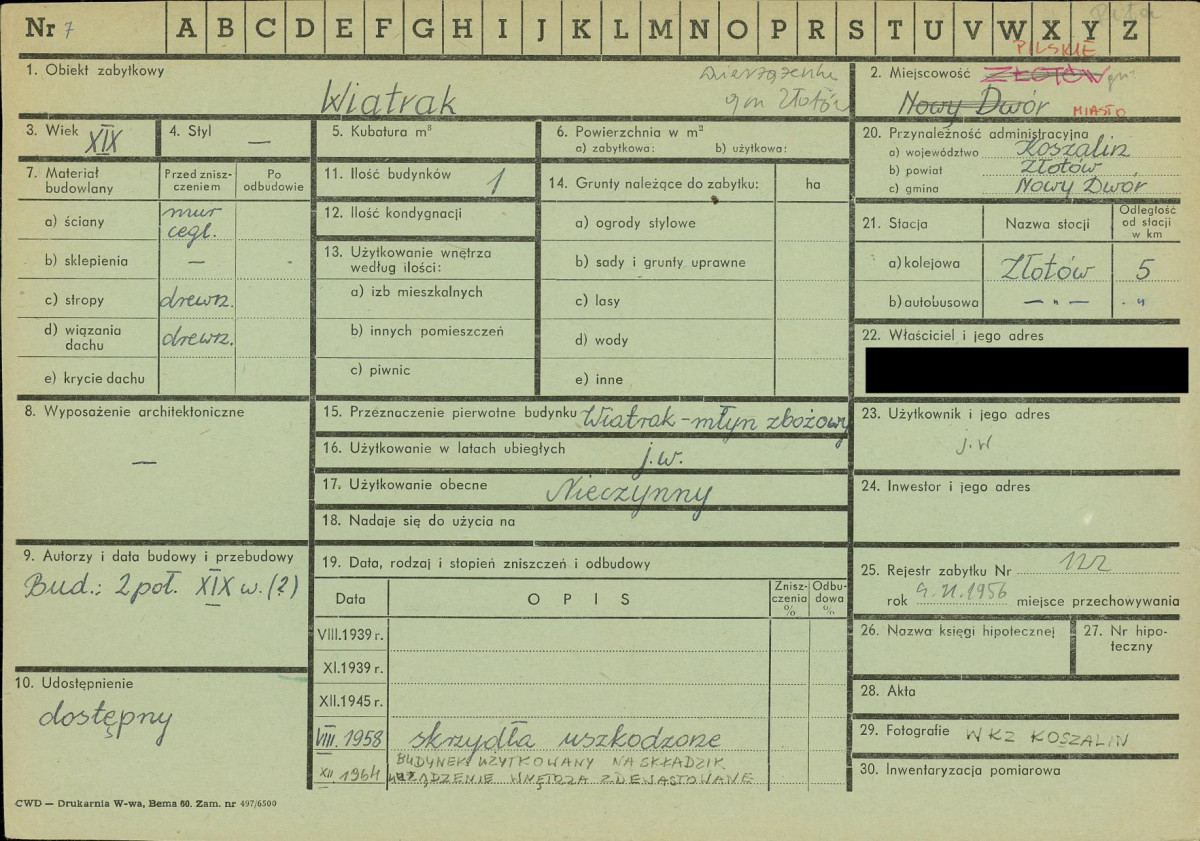 Piła
Nr 7 A B C D E F G H I J K L M N O P R S T U V W X Y Z
1. Obiekt zabytkowy
Wiatrak
gm Złotów
PILSKIE
2. Miejscowość ZŁOTÓW gm.
Nowy Dwór MIASTO
3. Wiek XIX
4. Styl —
5. Kubatura m³
6. Powierzchnia w m²
a) zabytkowa: b) użytkowa:
7. Materiał budowlany
Przed zniszczeniem
Po odbudowie
a) ściany mur cegl.
b) sklepienia —
c) stropy drewn.
d) wiązania dachu drewn.
e) krycie dachu
8. Wyposażenie architektoniczne
—
9. Autorzy i data budowy i przebudowy
Bud.: 2 poł. XIX w. (?)
10. Udostępnienie
dostępny
11. Ilość budynków 1
12. Ilość kondygnacji
13. Użytkowanie wnętrza
według ilości:
a) izb mieszkalnych
b) innych pomieszczeń
c) piwnic
14. Grunty należące do zabytku: ha
a) ogrody stylowe
b) sady i grunty uprawne
c) lasy
d) wody
e) inne
15. Przeznaczenie pierwotne budynku Wiatrak - młyn zbożowy
16. Użytkowanie w latach ubiegłych j.w.
17. Użytkowanie obecne Nieczynny
18. Nadaje się do użycia na
19. Data, rodzaj i stopień zniszczeń i odbudowy
Data OPIS Zniszczenia % Odbudowa %
VIII.1939 r.
XI.1939 r.
XII.1945 r.
VIII. 1958 skrzydła uszkodzone
BUDYNEK UŻYTKOWANY NA SKŁADZIK
XII 1964 URZĄDZENIE WNĘTRZA ZDEWASTOWANE
20. Przynależność administracyjna
a) województwo Koszalin
b) powiat Złotów
c) gmina Nowy Dwór
21. Stacja Nazwa stocji Odległość od stacji w km
a) kolejowa Złotów 5
b) autobusowa — „ — „
22. Właściciel i jego adres
23. Użytkownik i jego adres
j.w
24. Inwestor i jego adres
25. Rejestr zabytku Nr
rok 1956 miejsce przechowywania
26. Nazwa księgi hipotecznej
27. Nr hipoteczny
28. Akta
29. Fotografie WKZ KOSZALIN
30. Inwentaryzacja pomiarowa
CWD — Drukarnia W-wa, Bema 60. Zam. nr 497/6500